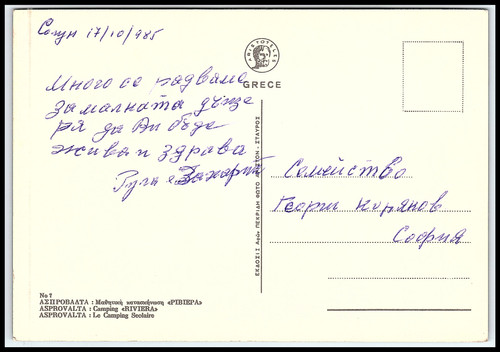 Солун 17/10/985
ARISTOTELES
GRECE
Много се радваме
за малката дъще
ря да Ви бъде
жива и здрава
Рула и Захарий
Семейство
Георги
София
ΕΚΔΟΣΙΣ: Ι. Αφών ΜΕΚΡΙΔΗ ΦΩΤΟ - ΣΤΑΥΡΟΣ
No 7
ΑΣΠΡΟΒΑΛΤΑ : Μαθητική κατασκήνωση «ΡΙΒΙΕΡΑ»
ASPROVALTA : Camping «RIVIERA»
ASPROVALTA : Le Camping Scolaire